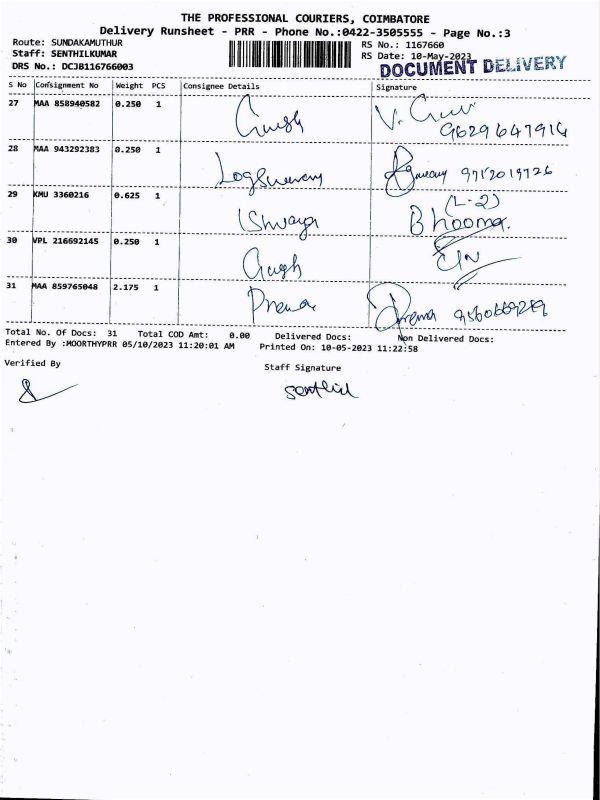 THE PROFESSIONAL COURIERS, COIMBATORE
Delivery Runsheet - PRR - Phone No.:0422-3505555 - Page No.:3
Route: SUNDAKAMUTHUR RS No.: 1167660
Staff: SENTHILKUMAR RS Date: 10-May-2023
DRS No.: DCJB116766003 DOCUMENT DELIVERY
S No Consignment No Weight PCS Consignee Details Signature
27 MAA 858940582 0.250 1
28 MAA 943292383 0.250 1
29 KMU 3360216 0.625 1 (L-2)
Bhooma.
30 VPL 216692145 0.250 1
31 MAA 859765048 2.175 1 Prema Prema
Total No. Of Docs: 31 Total COD Amt: 0.00 Delivered Docs: Non Delivered Docs:
Entered By :MOORTHYPRR 05/10/2023 11:20:01 AM Printed On: 10-05-2023 11:22:58
Verified By Staff Signature